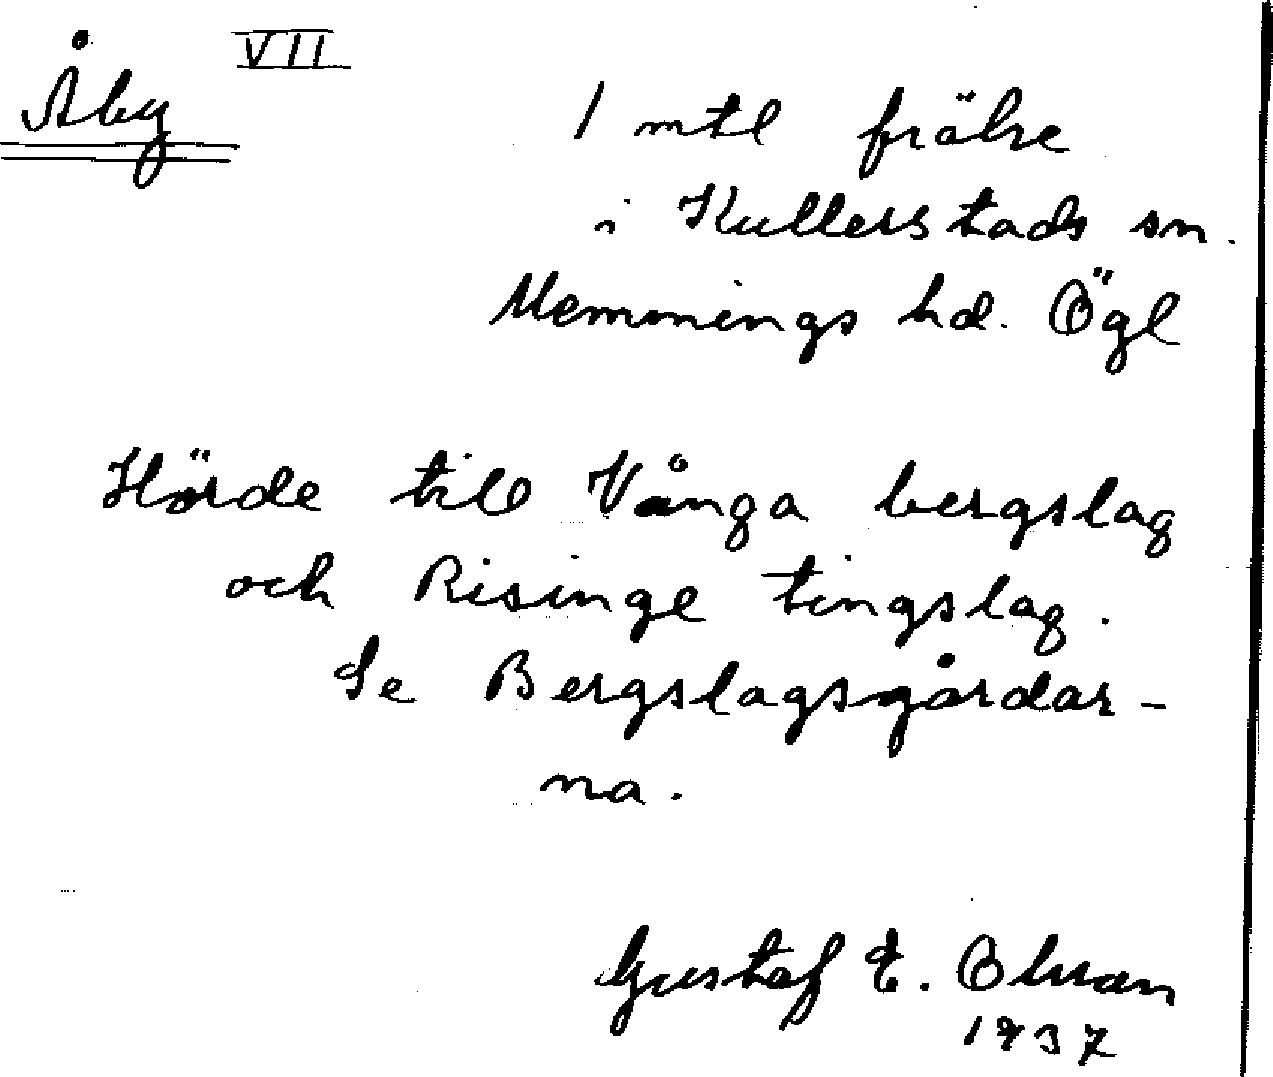 Åby VII
1 mtl frälse
i Kullerstads sn.
Memmings hd. Ögl
Hörde till Vånga bergslag
och Risinge tingslag.
Se Bergslagsgårdar-
na.
Gustaf E. Olsson
1937